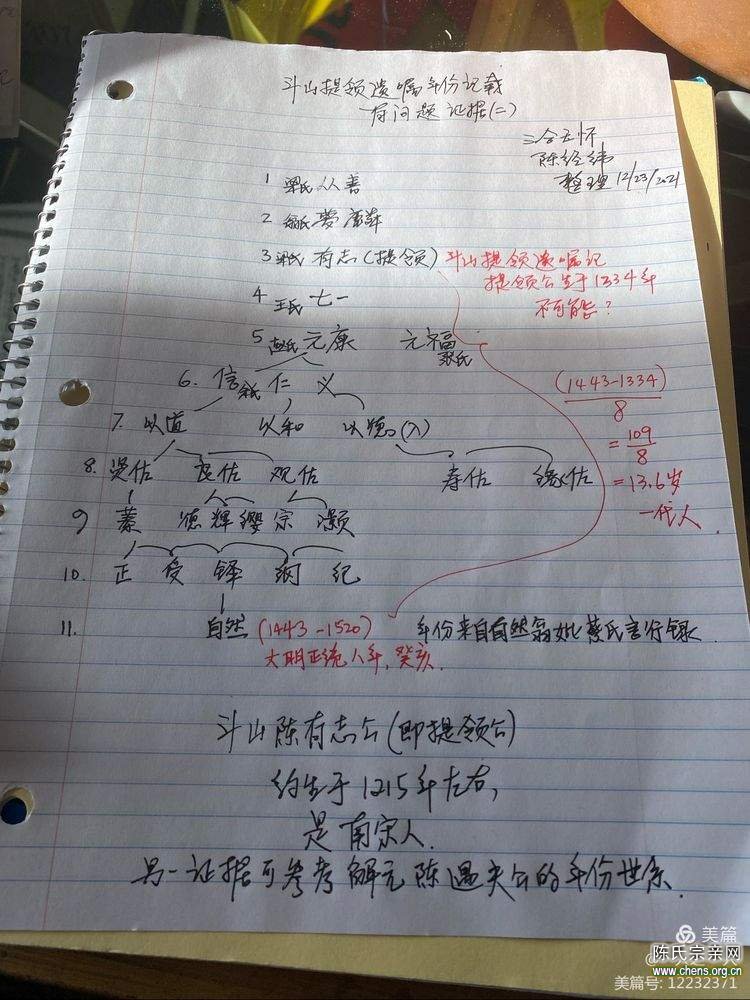 斗山提领遗嘱年份记载
有问题 证据(二)
三合五怀
陈经纬
整理 12/23/2021
1 梁氏 从善
2 翁氏 梦
3 梁氏 有志(提领)
斗山提领遗嘱记
提领公生于1334年
不可能?
4 王氏 七一
5 赵氏 元康 元福 张氏
6. 信 余氏 仁 义
7. 以道 以和 以德(入)
8. 贤佑 良佑 观佑 寿佑 佑
9 蓁 德 辉 缨 宗 灏
10. 正 受 铎 纲 纪
11. 自然 (1443-1520) 年份来自自然翁妣蔡氏言行录.
大明正统八年,癸亥.
(1443-1334)
8
= 109
8
= 13.6岁
一代人
斗山陈有志公(即提领公)
约生于1215年左右,
是南宋人.
另一证据可参考解元陈遇夫公的年份世系.
美篇
陈氏宗亲网
www.chens.org.cn
美篇号: 12232371